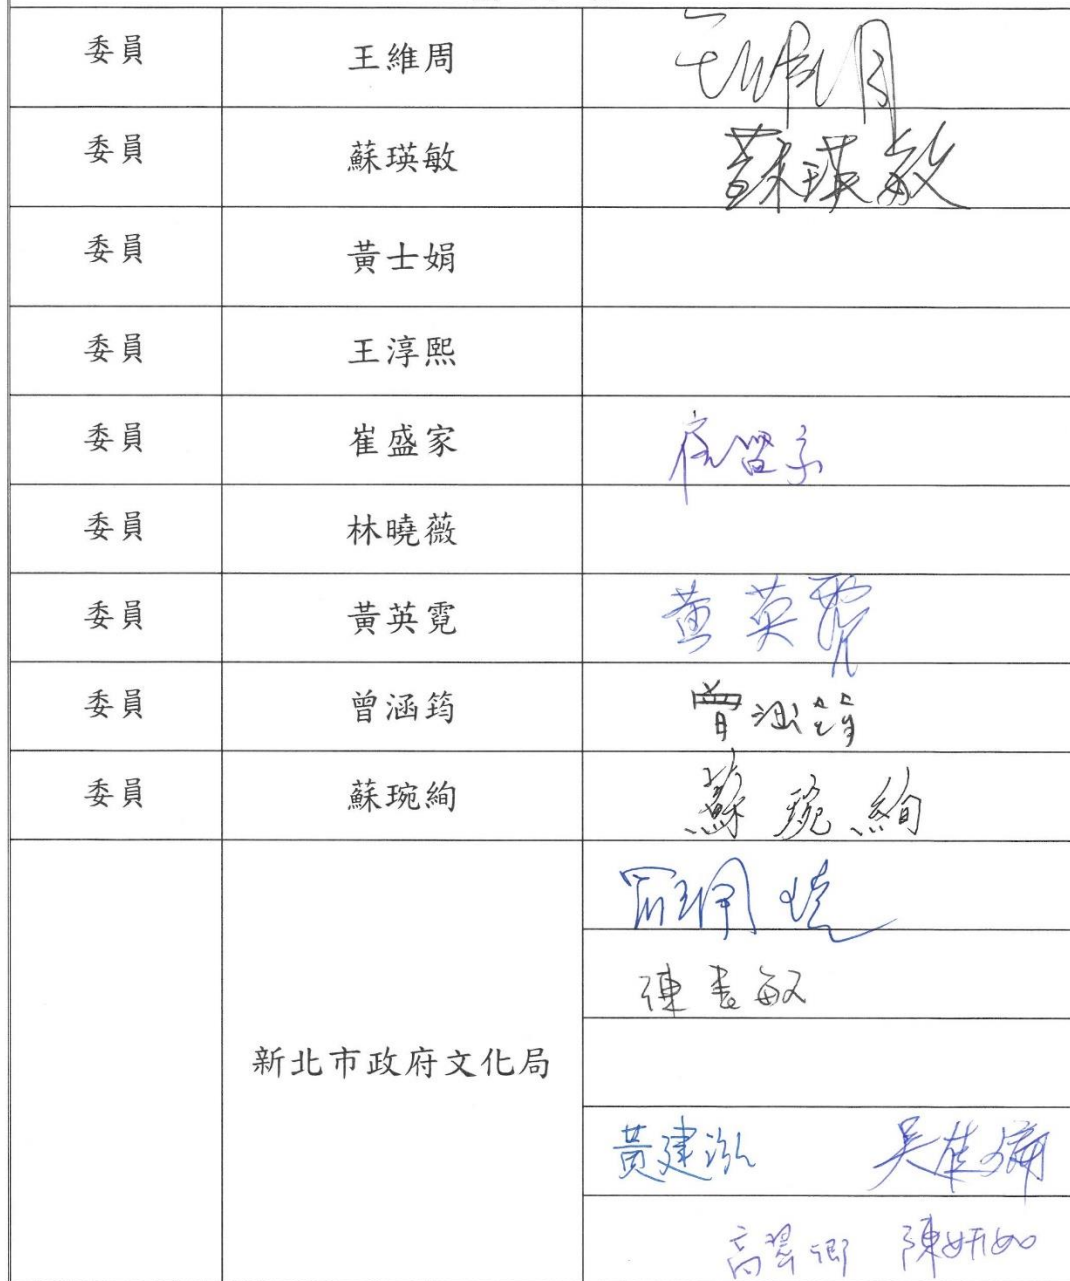 委員 王維周 王維周
委員 蘇瑛敏 蘇瑛敏
委員 黃士娟
委員 王淳熙
委員 崔盛家 崔盛家
委員 林曉薇
委員 黃英霓 黃英霓
委員 曾涵筠 曾涵筠
委員 蘇琬絢 蘇琬絢
陳書敏
新北市政府文化局
黃建泓
高翠卿 陳妍如